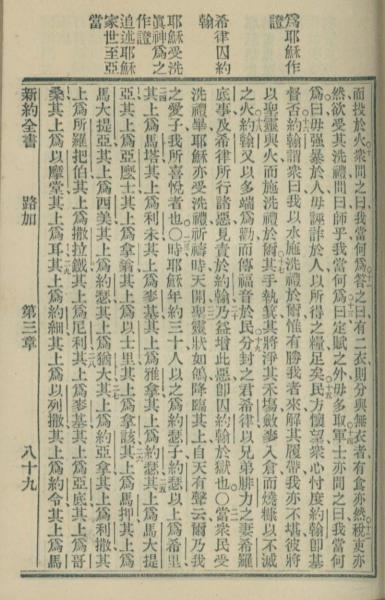 為耶穌作
證
希律囚約
翰
耶穌受洗
眞神爲之
作證
追述耶穌
家世至亞
當
而投於火衆問之曰我當何爲答之曰有二衣則分與無衣者有食亦然稅吏亦
然欲受其洗禮問曰師乎我當何爲曰定賦之外毋多取軍士亦問之曰我當何
爲曰毋强暴於人毋誣詐於人以所得之糧足矣民方懷望衆心忖度約翰卽基
督否約翰謂衆曰我以水施洗禮於爾惟有勝我者來解其履帶我亦不堪彼將
以聖靈與火而施洗禮於爾其手執箕其將淨其禾塲斂麥入倉而燒糠以不滅
之火約翰又以多端爲勸而傳福音於民分封之君希律以兄弟腓力之妻希羅
底事及希律所行諸惡見責於約翰乃益增此惡卽囚約翰於獄也〇當衆民受
洗禮畢耶穌亦受洗禮祈禱時天開聖靈狀如鴿降臨其上自天有聲云爾乃我
之愛子我所喜悅者也〇時耶穌年約三十人以之爲約瑟子約瑟以上爲希里
其上爲馬塔其上爲利未其上爲麥基其上爲雅拿其上爲約瑟其上爲馬大提
亞其上爲亞麽士其上爲拿翁其上爲以士里其上爲拿該其上爲馬押其上爲
馬大提亞其上爲西美其上爲約瑟其上爲猶大其上爲約亞拿其上爲利撒其
上爲所羅把伯其上爲撒拉鐵其上爲尼利其上爲麥基其上爲亞底其上爲哥
桑其上爲以摩堂其上爲耳其上爲約細其上爲以列撒其上爲約令其上爲馬
新約全書 路加 第三章 八十九